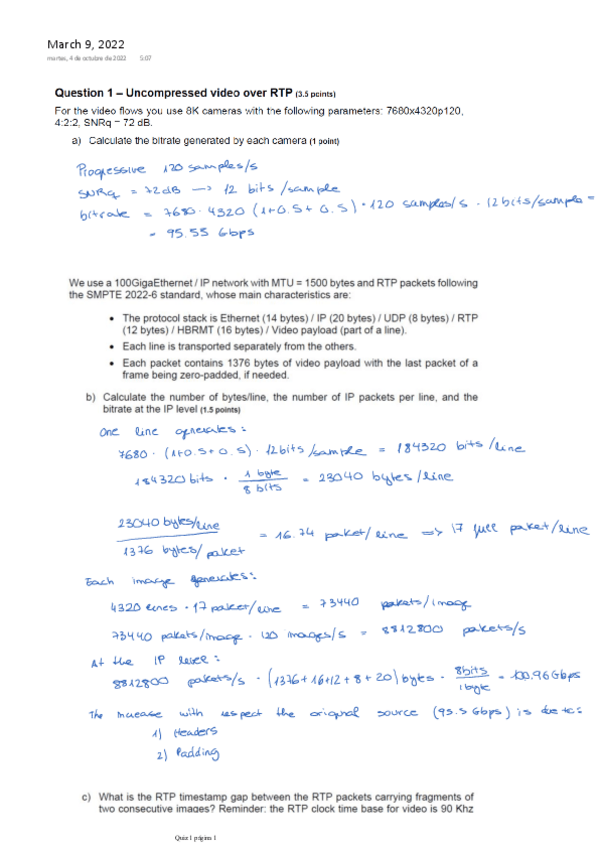 March 9, 2022
martes, 4 de octubre de 2022 5:07
Question 1 – Uncompressed video over RTP (3.5 points)
For the video flows you use 8K cameras with the following parameters: 7680x4320p120,
4:2:2, SNRq = 72 dB.
a) Calculate the bitrate generated by each camera (1 point)
Progressive 120 samples/s
SNRq = 72dB → 12 bits/sample
bitrate = 7680 · 4320 (1+0.5+0.5) · 120 samples/s · 12bits/sample =
= 95.55 Gbps
We use a 100GigaEthernet / IP network with MTU = 1500 bytes and RTP packets following
the SMPTE 2022-6 standard, whose main characteristics are:
• The protocol stack is Ethernet (14 bytes) / IP (20 bytes) / UDP (8 bytes) / RTP
(12 bytes) / HBRMT (16 bytes) / Video payload (part of a line).
• Each line is transported separately from the others.
• Each packet contains 1376 bytes of video payload with the last packet of a
frame being zero-padded, if needed.
b) Calculate the number of bytes/line, the number of IP packets per line, and the
bitrate at the IP level (1.5 points)
One line generates:
7680 · (1+0.5+0.5) · 12bits/sample = 184320 bits/line
184320 bits · 1 byte / 8 bits = 23040 bytes/line
23040 bytes/line / 1376 bytes/paket = 16.74 paket/line => 17 full paket/line
Each image generates:
4320 lines · 17 paket/line = 73440 pakets/image
73440 pakets/image · 120 images/s = 8812800 pakets/s
At the IP level:
8812800 pakets/s · (1376+16+12+8+20) bytes · 8bits / 1byte = 100.96 Gbps
The increase with respect the original source (95.5 Gbps) is due to:
1) Headers
2) Padding
c) What is the RTP timestamp gap between the RTP packets carrying fragments of
two consecutive images? Reminder: the RTP clock time base for video is 90 Khz
Quiz 1 página 1